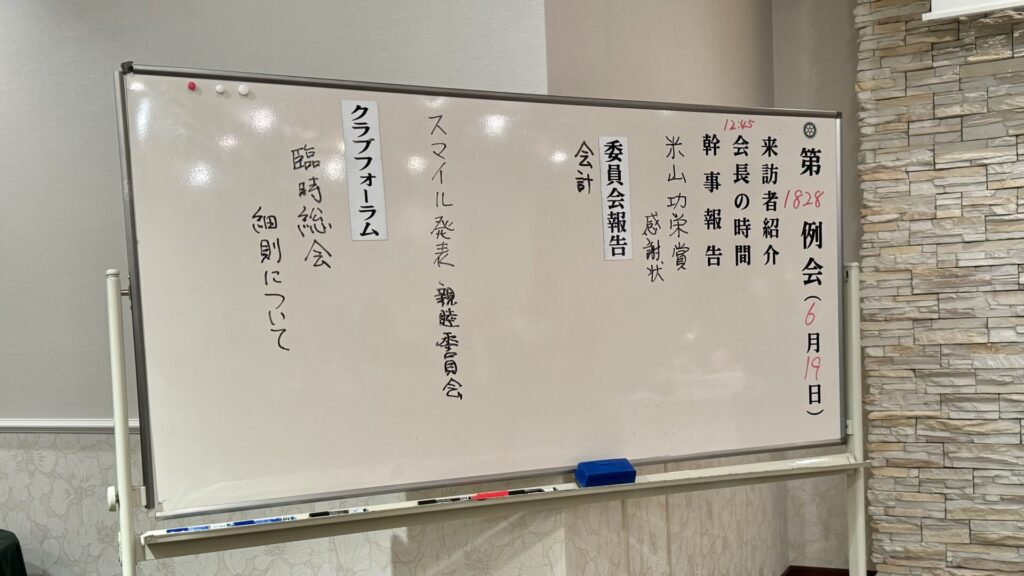 第1828例会(6月19日)
来訪者紹介
12:45
会長の時間
幹事報告
米山功栄賞
感謝状
委員会報告
会計
スマイル発表 親睦委員会
クラブフォーラム
臨時総会
細則について